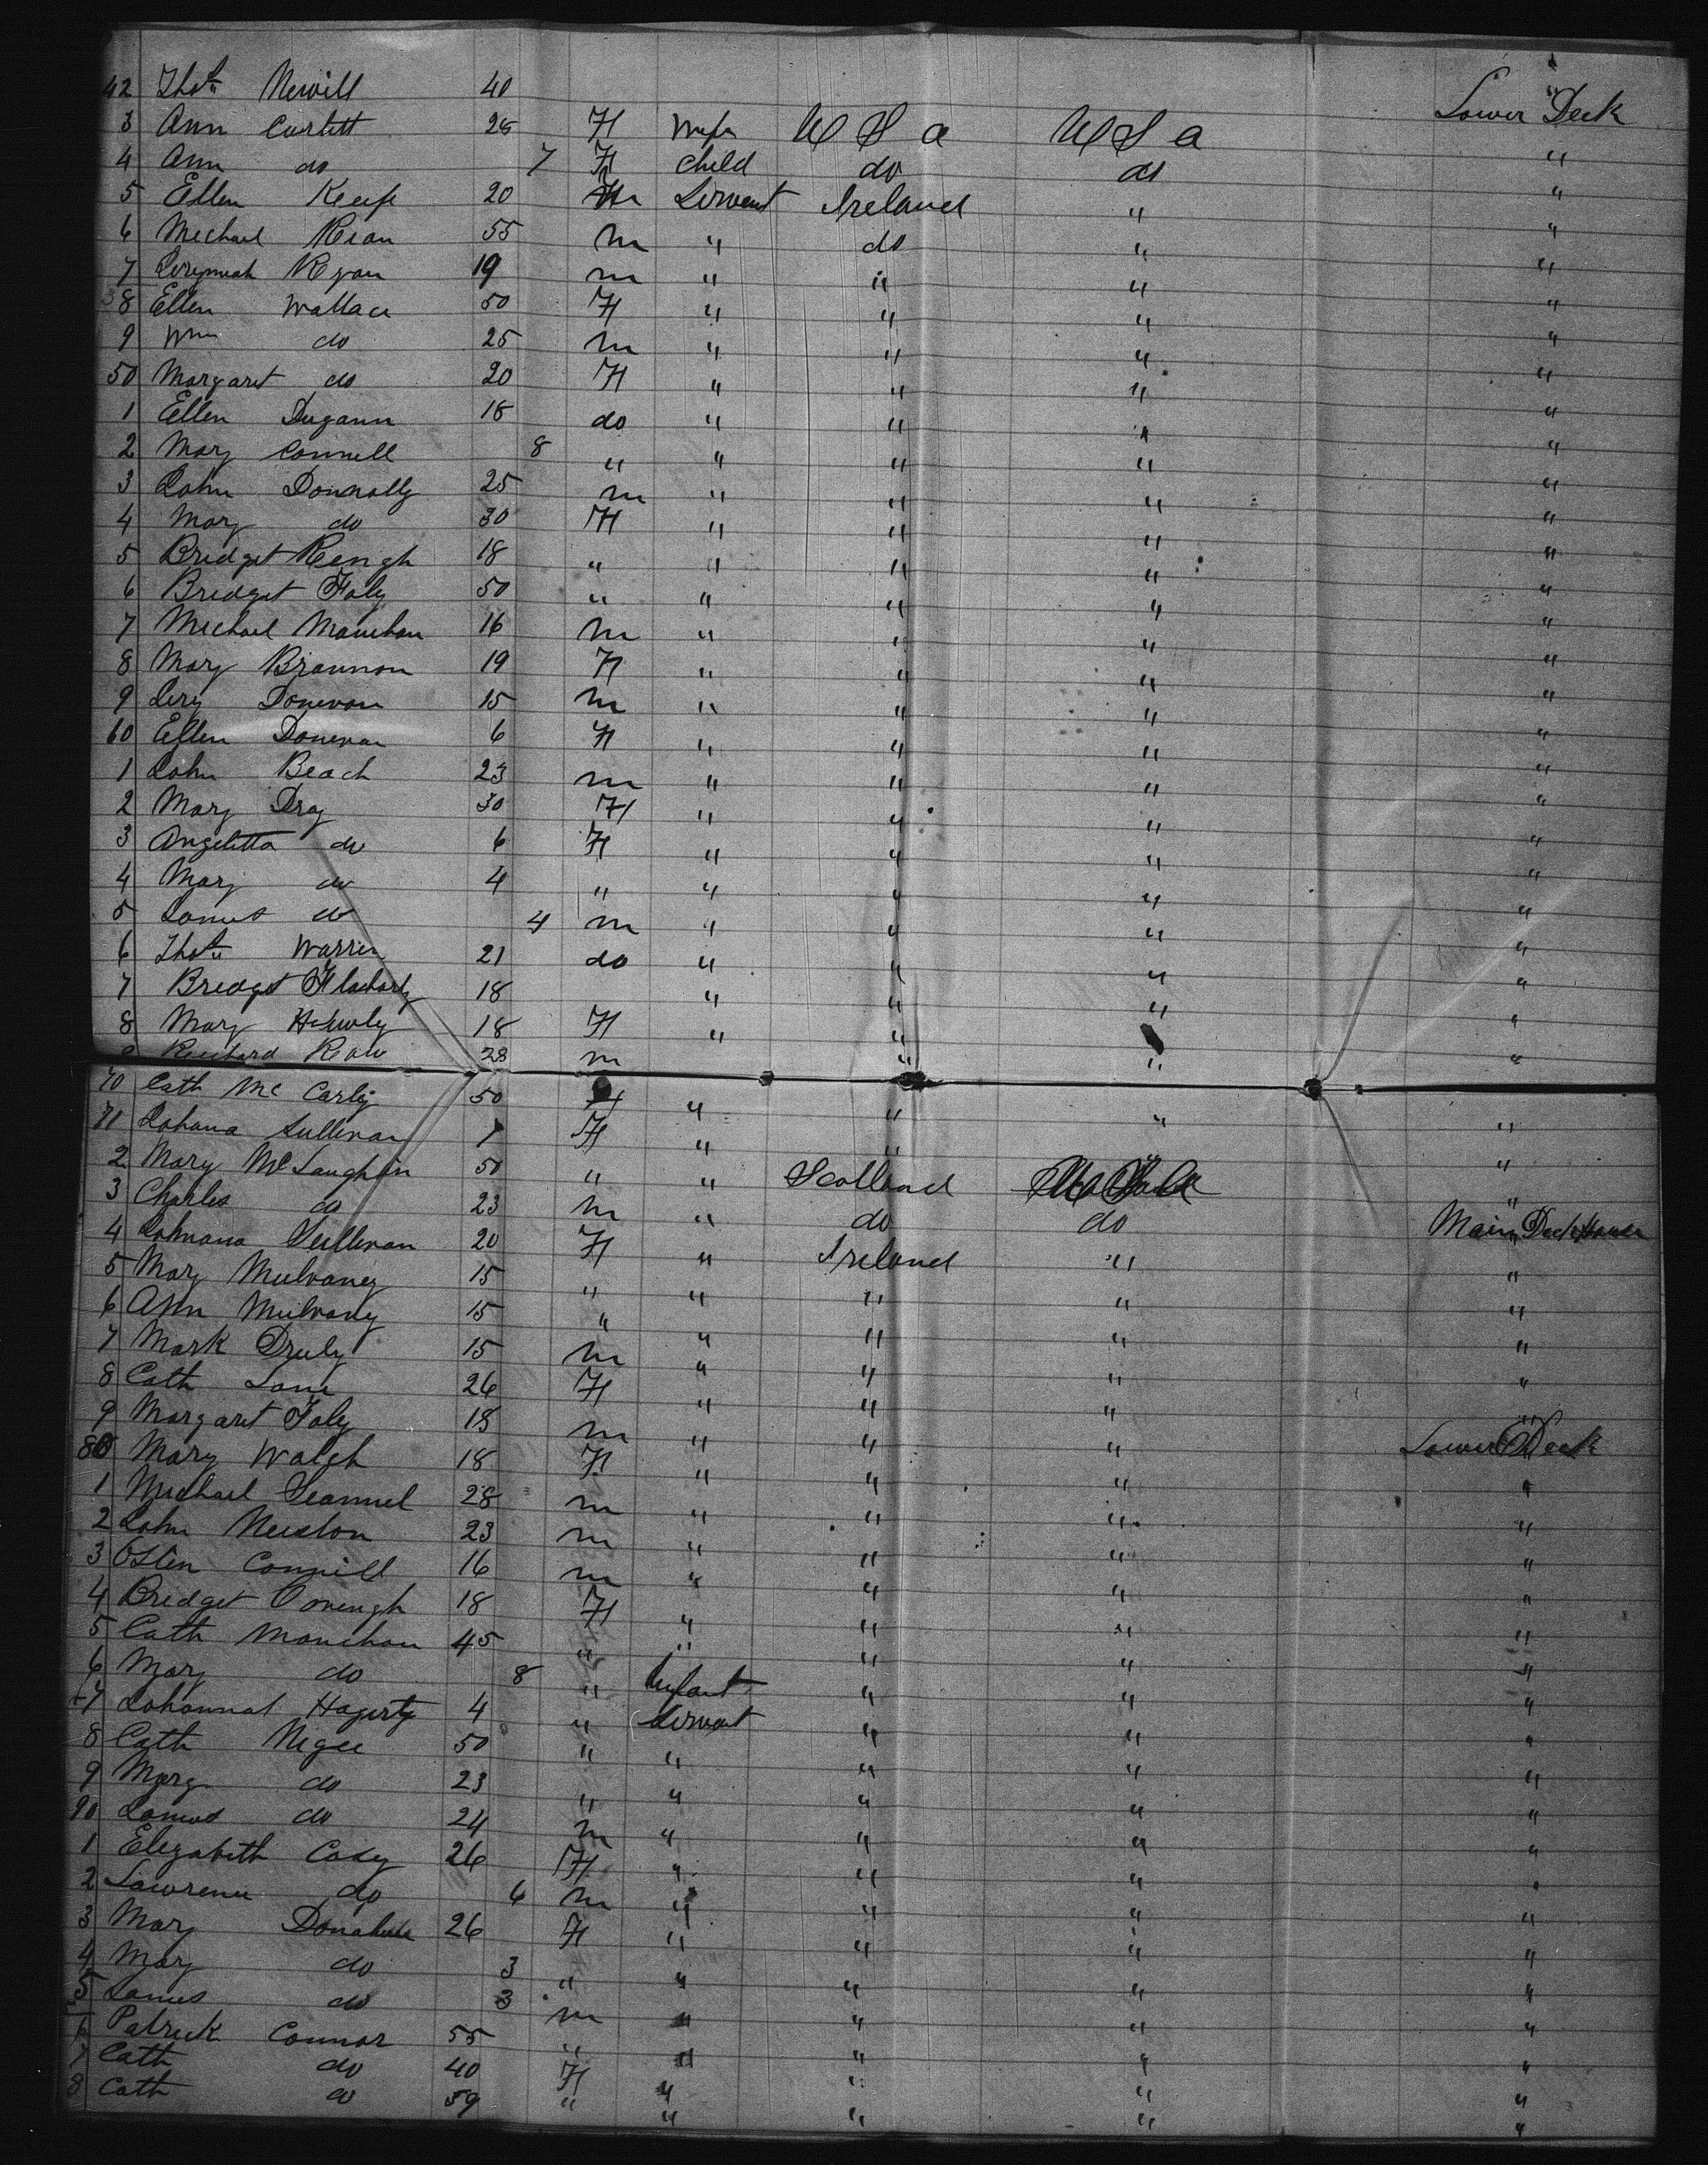 42 Thos Nevill 40 Lower Deck
3 Ann Corlett 25 F Wife U S a U S a "
4 Ann do 7 F Child do do "
5 Ellen Keefe 20 Servent Ireland " "
6 Mechael Kean 55 m " do " "
7 Ryan 19 m " " " "
8 Ellen Wallace 50 F " " " "
9 Wm do 25 m " " " "
50 Margaret do 20 F " " " "
1 Ellen Dugann 18 do " " " "
2 Mary Connell 8 " " " " "
3 John Donnolly 25 m " " " "
4 Mary do 30 F " " " "
5 Bridget Keugh 18 " " " " "
6 Bridget Foly 50 " " " " "
7 Mechael Manihan 16 m " " " "
8 Mary Brannon 19 F " " " "
9 Jery Donevan 15 m " " " "
60 Ellen Donevan 6 F " " " "
1 John Beach 23 m " " " "
2 Mary Dray 30 F " " " "
3 Angelitta do 6 F " " " "
4 Mary do 4 " " " " "
5 James do 4 m " " " "
6 Thos Warren 21 do " " " "
7 Bridget Flaharty 18 " " " "
8 Mary 18 F " " " "
9 Reichard 28 m " " "
70 Cath Mc Carty 50 F " " " "
71 Johana Sullivan 7 F " " "
2 Mary McLaughlin 50 " " Scotland "
3 Charles do 23 m " do do Main Deck House
4 Johnana Sullivan 20 F " Ireland " "
5 Mary Mulvaney 15 " " " " "
6 Ann Mulvany 15 " " " " "
7 Mark Druly 15 m " " " "
8 Cath Lane 26 F " " " "
9 Margaret Foly 18 m " " " Lower Deck
80 Mary Walch 18 F " " " "
1 Michael Scannel 28 m " " " "
2 John 23 m " " " "
3 Osten Connill 16 m " " " "
4 Bridget 18 F " " " "
5 Cath Monihan 45 " " " " "
6 Mary do 8 " Infant " " "
7 Johannah Hagerty 4 " Servant " " "
8 Cath Negle 50 " " " " "
9 Mary do 23 " " " " "
90 James do 24 m " " " "
1 Elezabeth Casey 26 F " " " "
2 Lawrence do 6 m " " " "
3 Mary Donahue 26 F " " " "
4 Mary do 3 " " " " "
5 James do 3 m " " " "
6 Patrick Connor 55 " " " " "
7 Cath do 40 F " " " "
8 Cath do 59 " " " " "